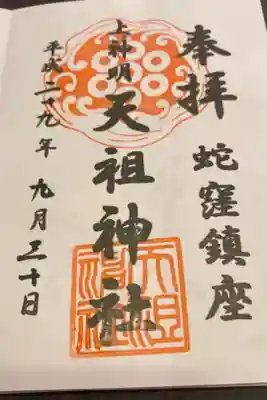 奉拝
蛇窪鎮座
上神明
天祖神社
平成二十九年
九月三十日
天祖神社